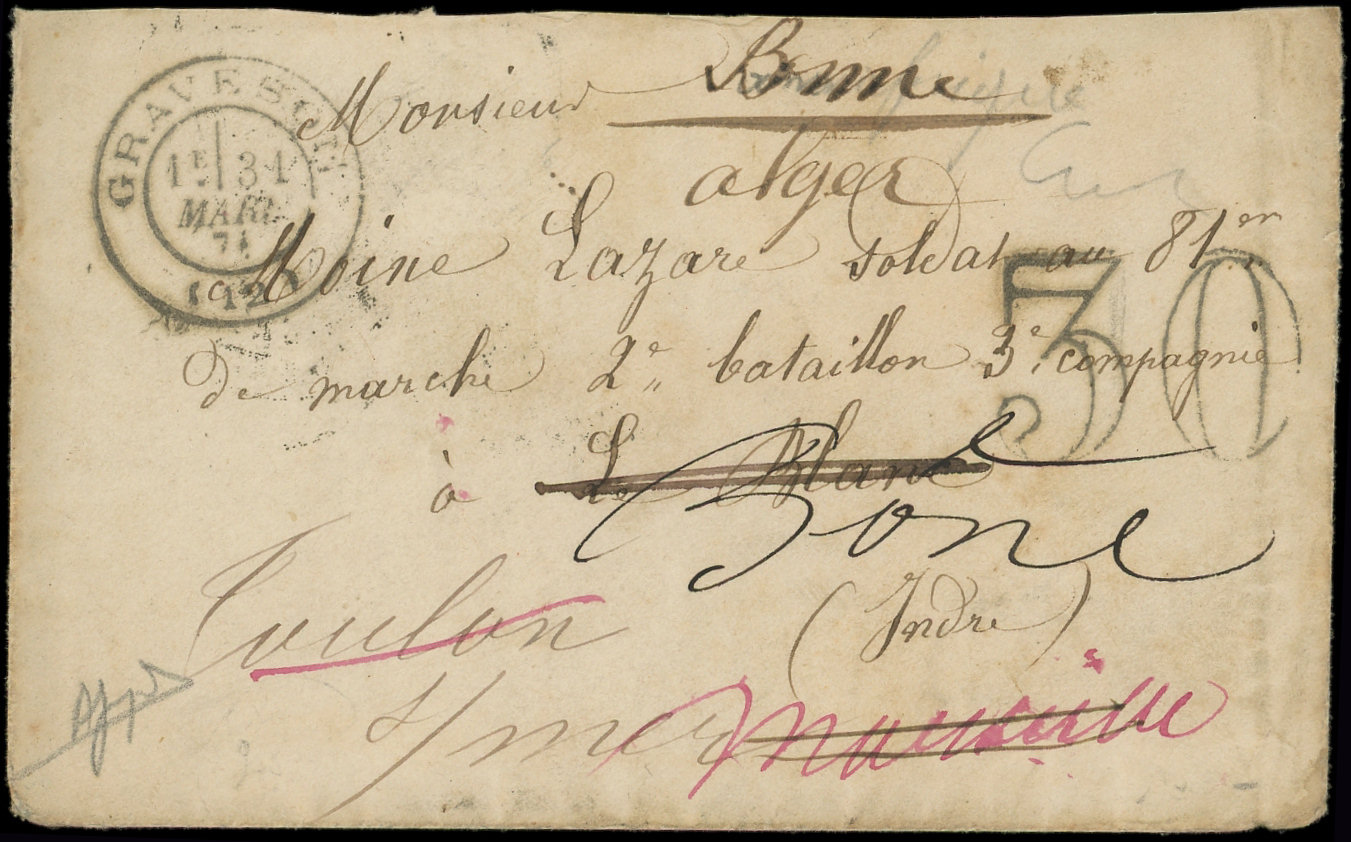 GRAVESON
1E 31
MARS
71
(12)
Bonne
Monsieur
alger
Moine Lazare soldat au 81er
de marche 2e bataillon 3e compagnie
30
à Le Blanc
Bone
(Indre)
Toulon
s/mer
Marseille